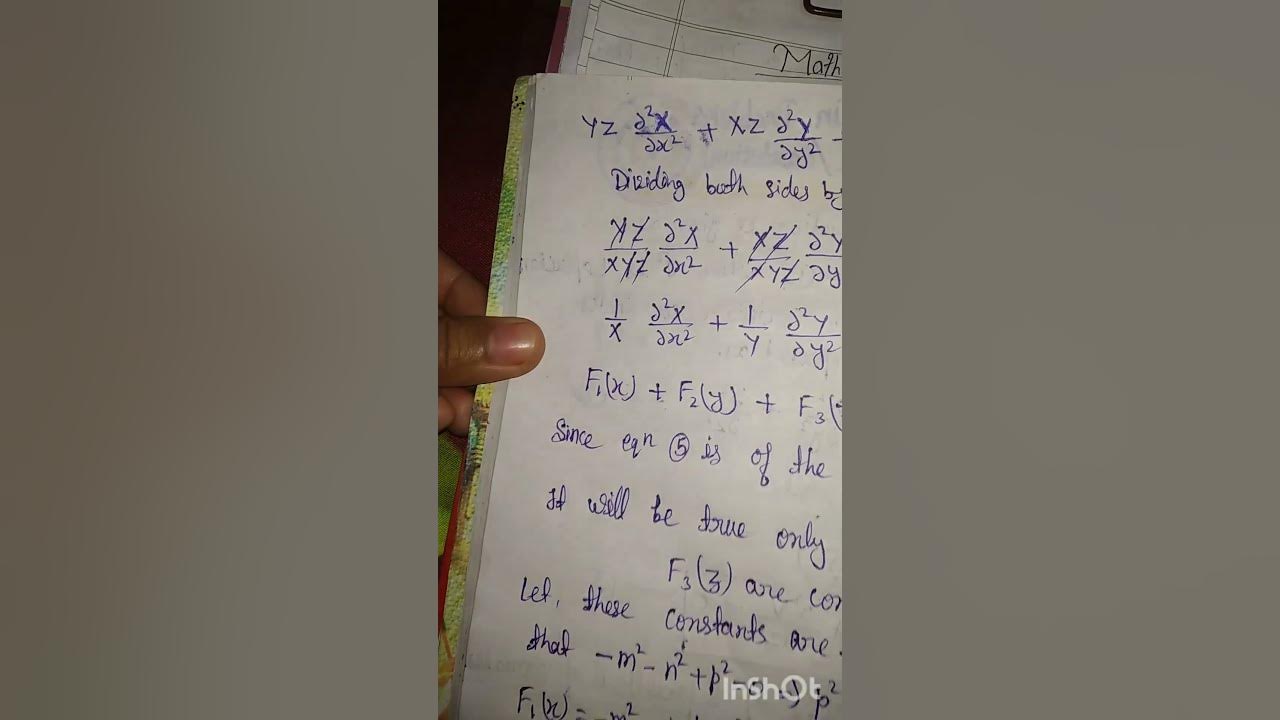 Math
YZ ∂²X/∂x² + XZ ∂²Y/∂y²
Dividing both sides by
YZ/XYZ ∂²X/∂x² + XZ/XYZ ∂²Y/∂y
1/X ∂²X/∂x² + 1/Y ∂²Y/∂y²
F₁(x) + F₂(y) + F₃(
Since eqn ⑤ is of the
It will be true only
F₃(z) are con
Let, these constants are
that -m² - n² + p² p²
F₁(x) = -m²
InShOt